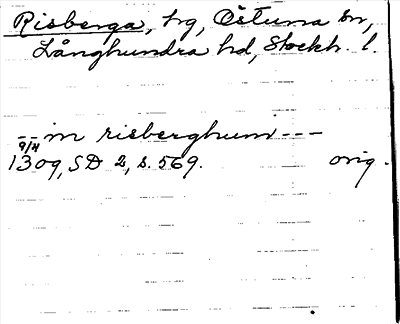 Risberga, trg, Östuna sn,
Långhundra hd, Stockh. l.
-- in risberghum ---
9/4
1309, SD 2, s. 569. orig.